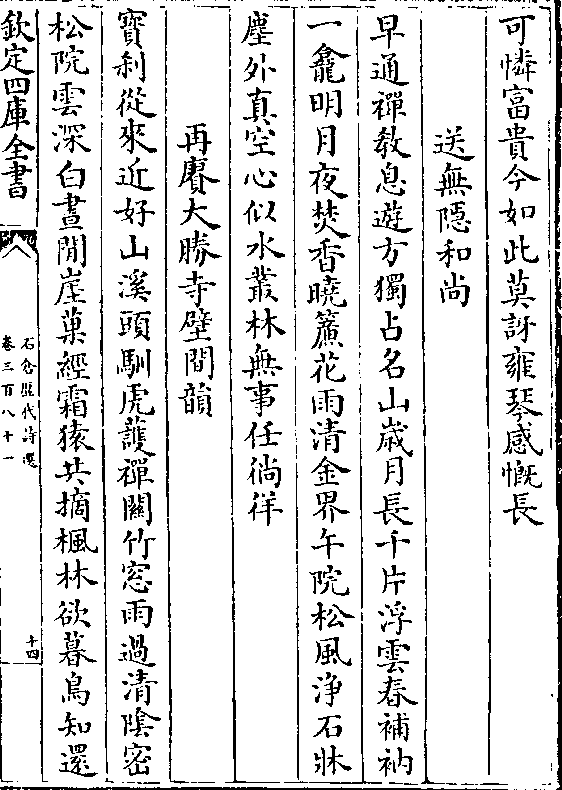 可憐富貴今如此莫訝雍琴感慨長
送無隱和尚
早通禪教息遊方獨占名山歲月長千片浮雲春補衲
一龕明月夜焚香曉簾花雨清金界午院松風淨石牀
塵外真空心似水叢林無事任徜徉
再賡大勝寺壁間韻
寶刹從來近好山溪頭馴虎護禪關竹窓雨過清陰密
松院雲深白晝閒崖菓經霜猿共摘楓林欲暮鳥知還
欽定四庫全書
石倉歷代詩選
卷三百八十一
十四